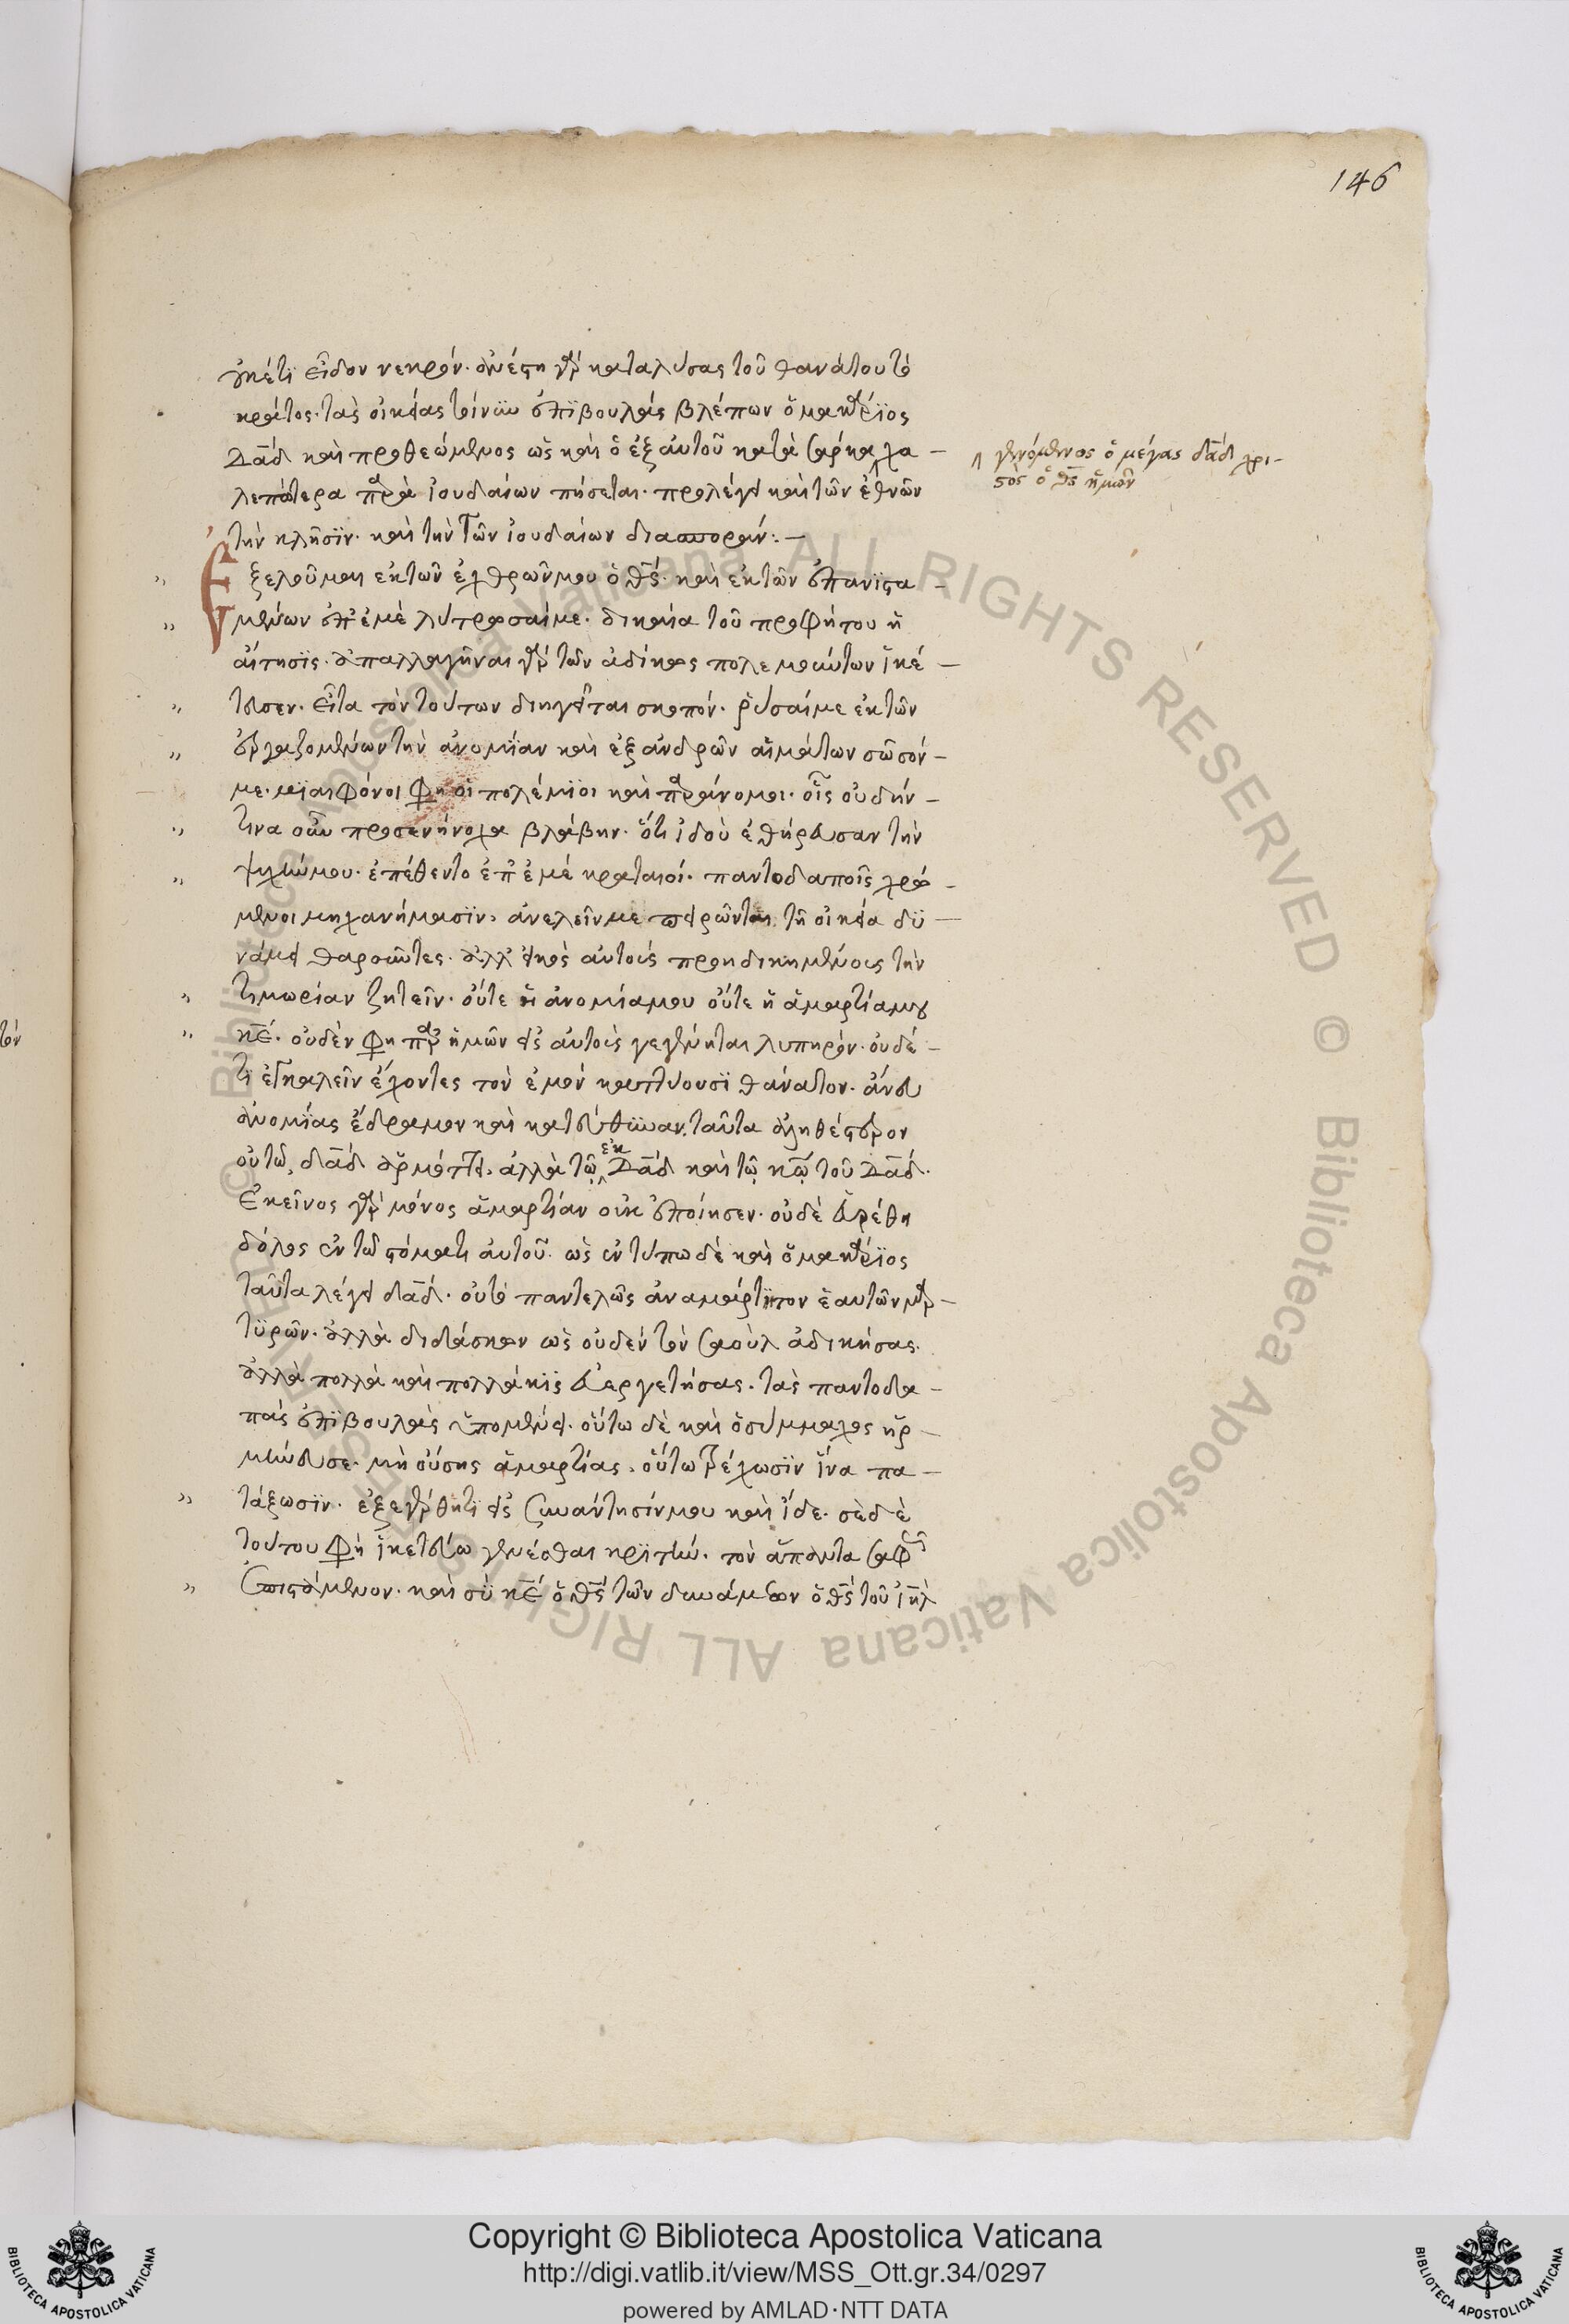 146
οὐκέτι εἶδον νεκρόν. ἀνέστη γὰρ καταλύσας τοῦ θανάτου τὸ
κράτος. τὰς οἰκείας τοίνυν ἐπϊβουλὰς βλέπων ὁ μακάρϊος
Δα̅δ καὶ προθεώμενος ὡς καὶ ὁ ἐξ αὐτοῦ κατὰ σάρκα χα-
γενόμενος ὁ μέγας δα̅δ χρι-
στὸς ὁ θ̅ς ἡμῶν
λεπώτερα παρὰ ἰουδαίων πήσεται. προλέγει καὶ τῶν ἐθνῶν
τὴν κλῆσϊν. καὶ τὴν τῶν ἰουδαίων διασποράν:-
Ἐξελοῦ μαι ἐκ τῶν ἐχθρῶν μου ὁ θ̅ς. καὶ ἐκ τῶν ἐπανϊστα-
μένων ἐπ' ἐμὲ λύτρωσαί με. δικαία τοῦ προφήτου ἡ
αἴτησϊς. ἀπαλλαγῆναι γὰρ τῶν ἀδίκως πολεμούντων ἱκέ-
τευσεν. εἶτα τὸν τούτων διηγεῖται σκοπόν. ῥύσαί με ἐκ τῶν
ἐργαζομένων τὴν ἀνομίαν καὶ ἐξ ἀνδρῶν αἱμάτων σῶσόν-
με. μϊαιφόνοι φη οἱ πολέμϊοι καὶ παράνομοι. οἷς οὐδήν-
τινα οὖν προσενήνοχα βλάβην. ὅτι ἰδοὺ ἐθήρευσαν τὴν
ψυχήν μου. ἐπέθεντο ἐπ' ἐμέ κραταιοί. παντοδαποῖς χρό-
μενοι μηχανήμασϊν, ἀνελεῖν με πειρῶνται τῆ οἰκεία δϋ-
νάμει θαρσοῦντες. ἀλλ' εἰκὸς αὐτοὺς προηδικημένους τὴν
τιμωρίαν ζητεῖν. οὔτε ἡ ἀνομία μου οὔτε ἡ ἁμαρτία μου
κ̅ε. οὐδὲν φη παρ' ἡμῶν εἰς αὐτοὺς γεγένηται λυπηρόν. οὐδέ-
τι ἐγκαλεῖν ἔχοντες τὸν ἐμὸν καττύουσϊ θάνατον. ἄνευ
ἀνομίας ἔδραμον καὶ κατεύθυναν. ταῦτα ἀληθέστερον
οὐ τῶ δα̅δ ἁρμόττει. ἀλλὰ τῶ ἐκ Δα̅δ καὶ τῶ κ̅ω τοῦ Δα̅δ.
Ἐκεῖνος γὰρ μόνος ἁμαρτίαν οὐκ ἐποίησεν. οὐδὲ εὑρέθη
δόλος ἐν τῶ στόματι αὐτοῦ. ὡς ἐν τύπω δὲ καὶ ὁ μακάρϊος
ταῦτα λέγει δα̅δ. οὐ τὸ παντελῶς ἀναμάρτητον ἑαυτῶν μαρ-
τϋρῶν. ἀλλὰ διδάσκων ὡς οὐδὲν τὸν σαοὺλ ἀδικήσας.
ἀλλὰ πολλὰ καὶ πολλάκϊς εὐεργετήσας. τὰς παντοδα-
πὰς ἐπϊβουλὰς ὑπομένει. οὕτω δὲ καὶ ὁ σύμμαχος ἡρ-
μήνευσε. μὴ οὔσης ἁμαρτίας. οὕτω τρέχωσϊν ἵνα πα-
τάξωσϊν. ἐξεγέρθητϊ εἰς συνάντησίν μου καὶ ἴδε. σὲ δὲ
τούτου φη ἱκετεύω γενέσθαι κρϊτήν. τὸν ἅπαντα σαφῶς
ἐπιστάμενον. καὶ σϋ κ̅ε ὁ θ̅ς τῶν δυνάμεων ὁ θ̅ς τοῦ ἰη̅λ
τὸν
Copyright © Biblioteca Apostolica Vaticana
http://digi.vatlib.it/view/MSS_Ott.gr.34/0297
powered by AMLAD·NTT DATA
BIBLIOTECA APOSTOLICA VATICANA
BIBLIOTECA APOSTOLICA VATICANA
© Biblioteca Apostolica Vaticana ALL RIGHTS RESERVED © Biblioteca Apostolica Vaticana ALL RIGHTS RESERVED